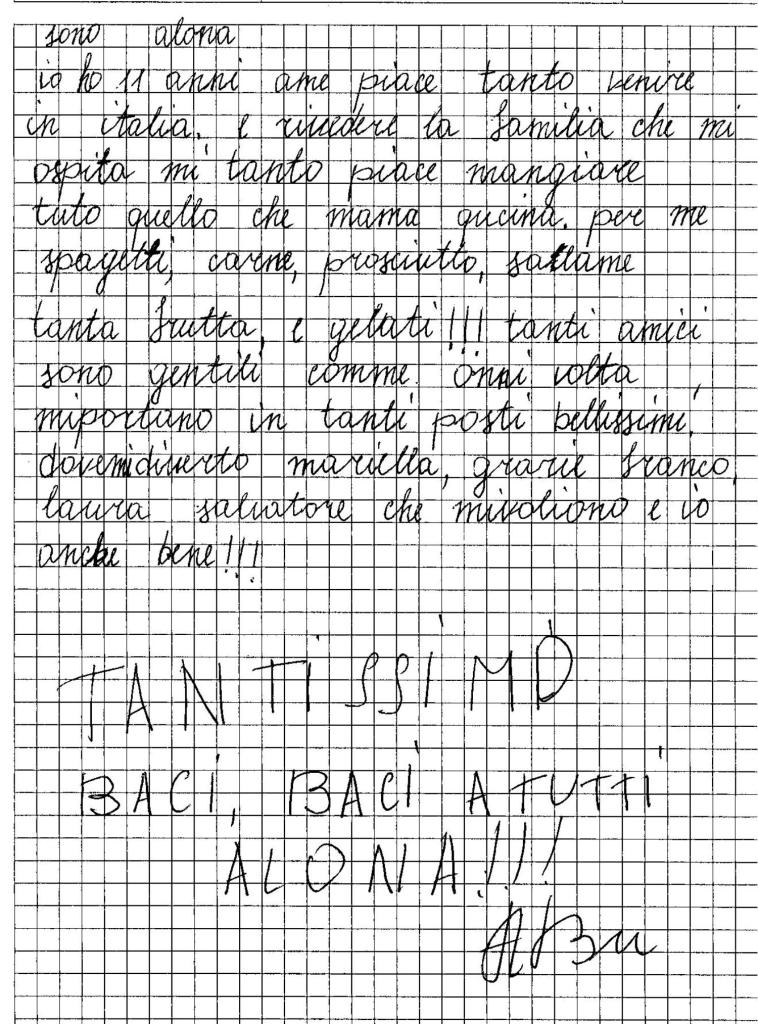 sono alona
io ho 11 anni ame piace tanto venire
in italia. e rivedere la familia che mi
ospita mi tanto piace mangiare
tuto quello che mama qucina. per me
spagetti, carne, prosciutto, sallame
tanta frutta, e gelati!!! tanti amici
sono gentili comme onni volta,
miportano in tanti posti bellissimi,
dovemidiverto mariella, grazie franco,
laura salvatore che mivoliono e io
anche bene!!!
TANTISSIMO
BACI, BACI A TUTTI
ALONA!!!